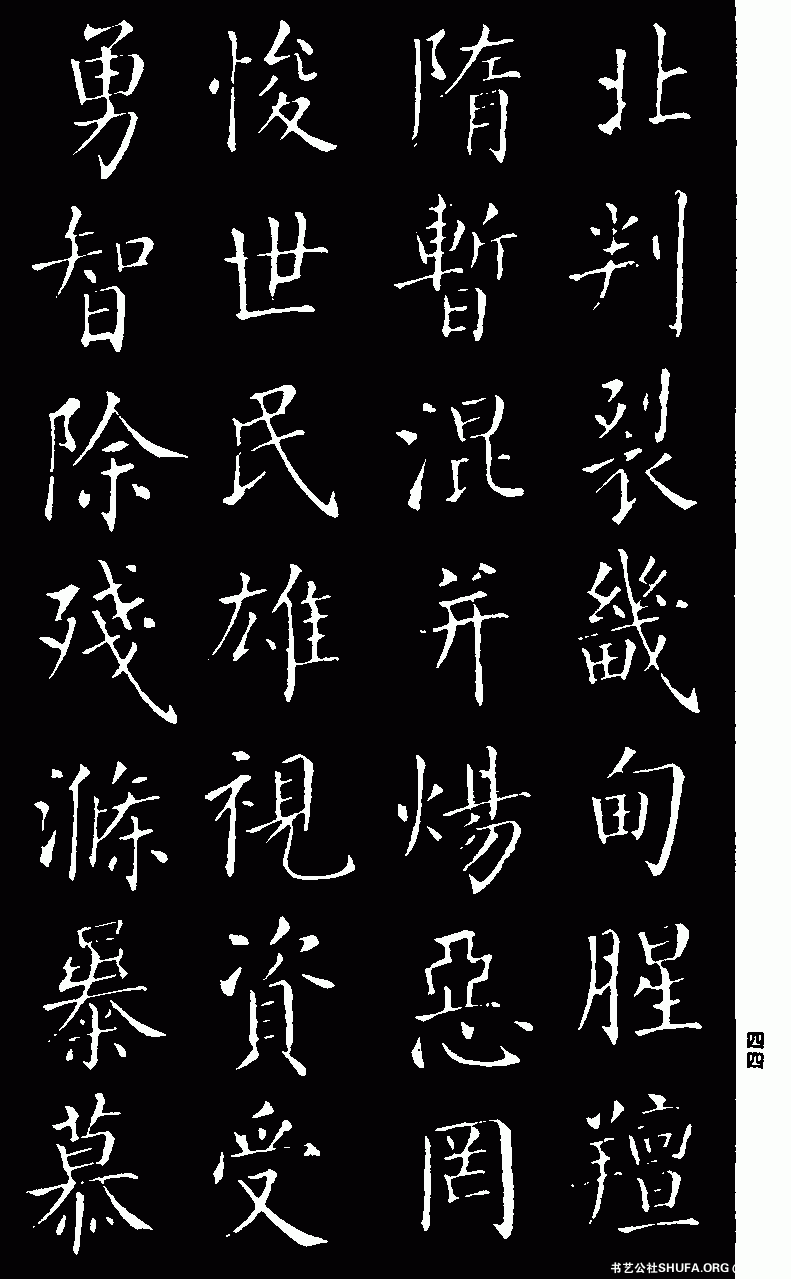 北判裂畿甸腥羶
隋暫混并煬惡罔
悛世民雄視資受
勇智除殘滌暴慕
四四
书艺公社SHUFA.ORG